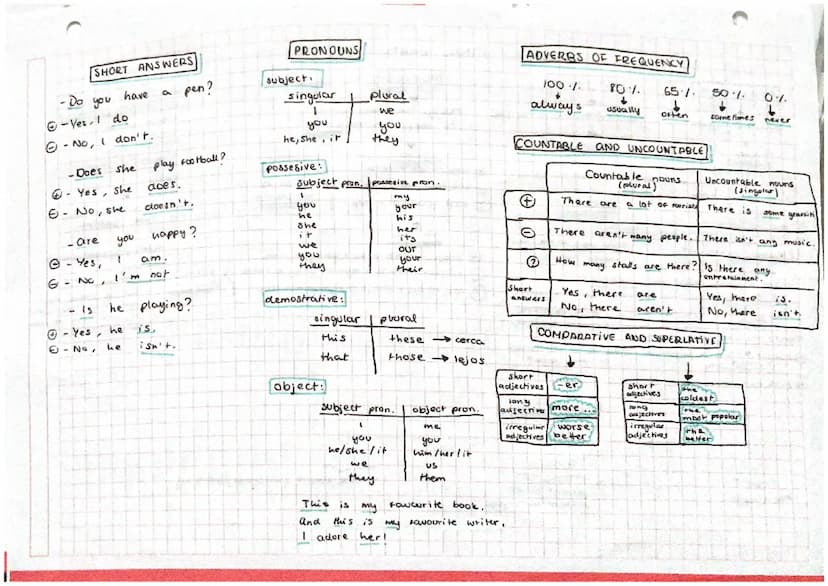 SHORT ANSWERS
- Do you have a pen?
+ - Yes, I do
- - No, I don't.
- Does she play football?
+ - Yes, she does.
- - No, she doesn't.
- are you happy?
+ - Yes, I am.
- - No, I'm not.
- Is he playing?
+ - Yes, he is.
- - No, he isn't.
PRONOUNS
subject:
singular plural
I we
you you
he, she, it they
possesive:
subject pron. possesive pron.
I my
you your
he his
she her
it its
we our
you your
they their
demostrative:
singular plural
this these → cerca
that those → lejos
object:
subject pron. object pron.
I me
you you
he/she/it him/her/it
we us
they them
This is my favourite book.
And this is my favourite writer.
I adore her!
ADVERBS OF FREQUENCY
100% 80% 65% 50% 0%
always usually often sometimes never
COUNTABLE AND UNCOUNTABLE
Countable nouns (plural) Uncountable nouns (singular)
+ There are a lot of There is some
- There aren't many people. There isn't any music.
? How many stalls are there? Is there any entertainment.
Short answers Yes, there are Yes, there is.
No, there aren't No, there isn't.
COMPARATIVE AND SUPERLATIVE
short adjectives -er
long adjective more ...
irregular adjectives worse better
short adjectives the coldest
long adjectives the most popular
irregular adjectives the better